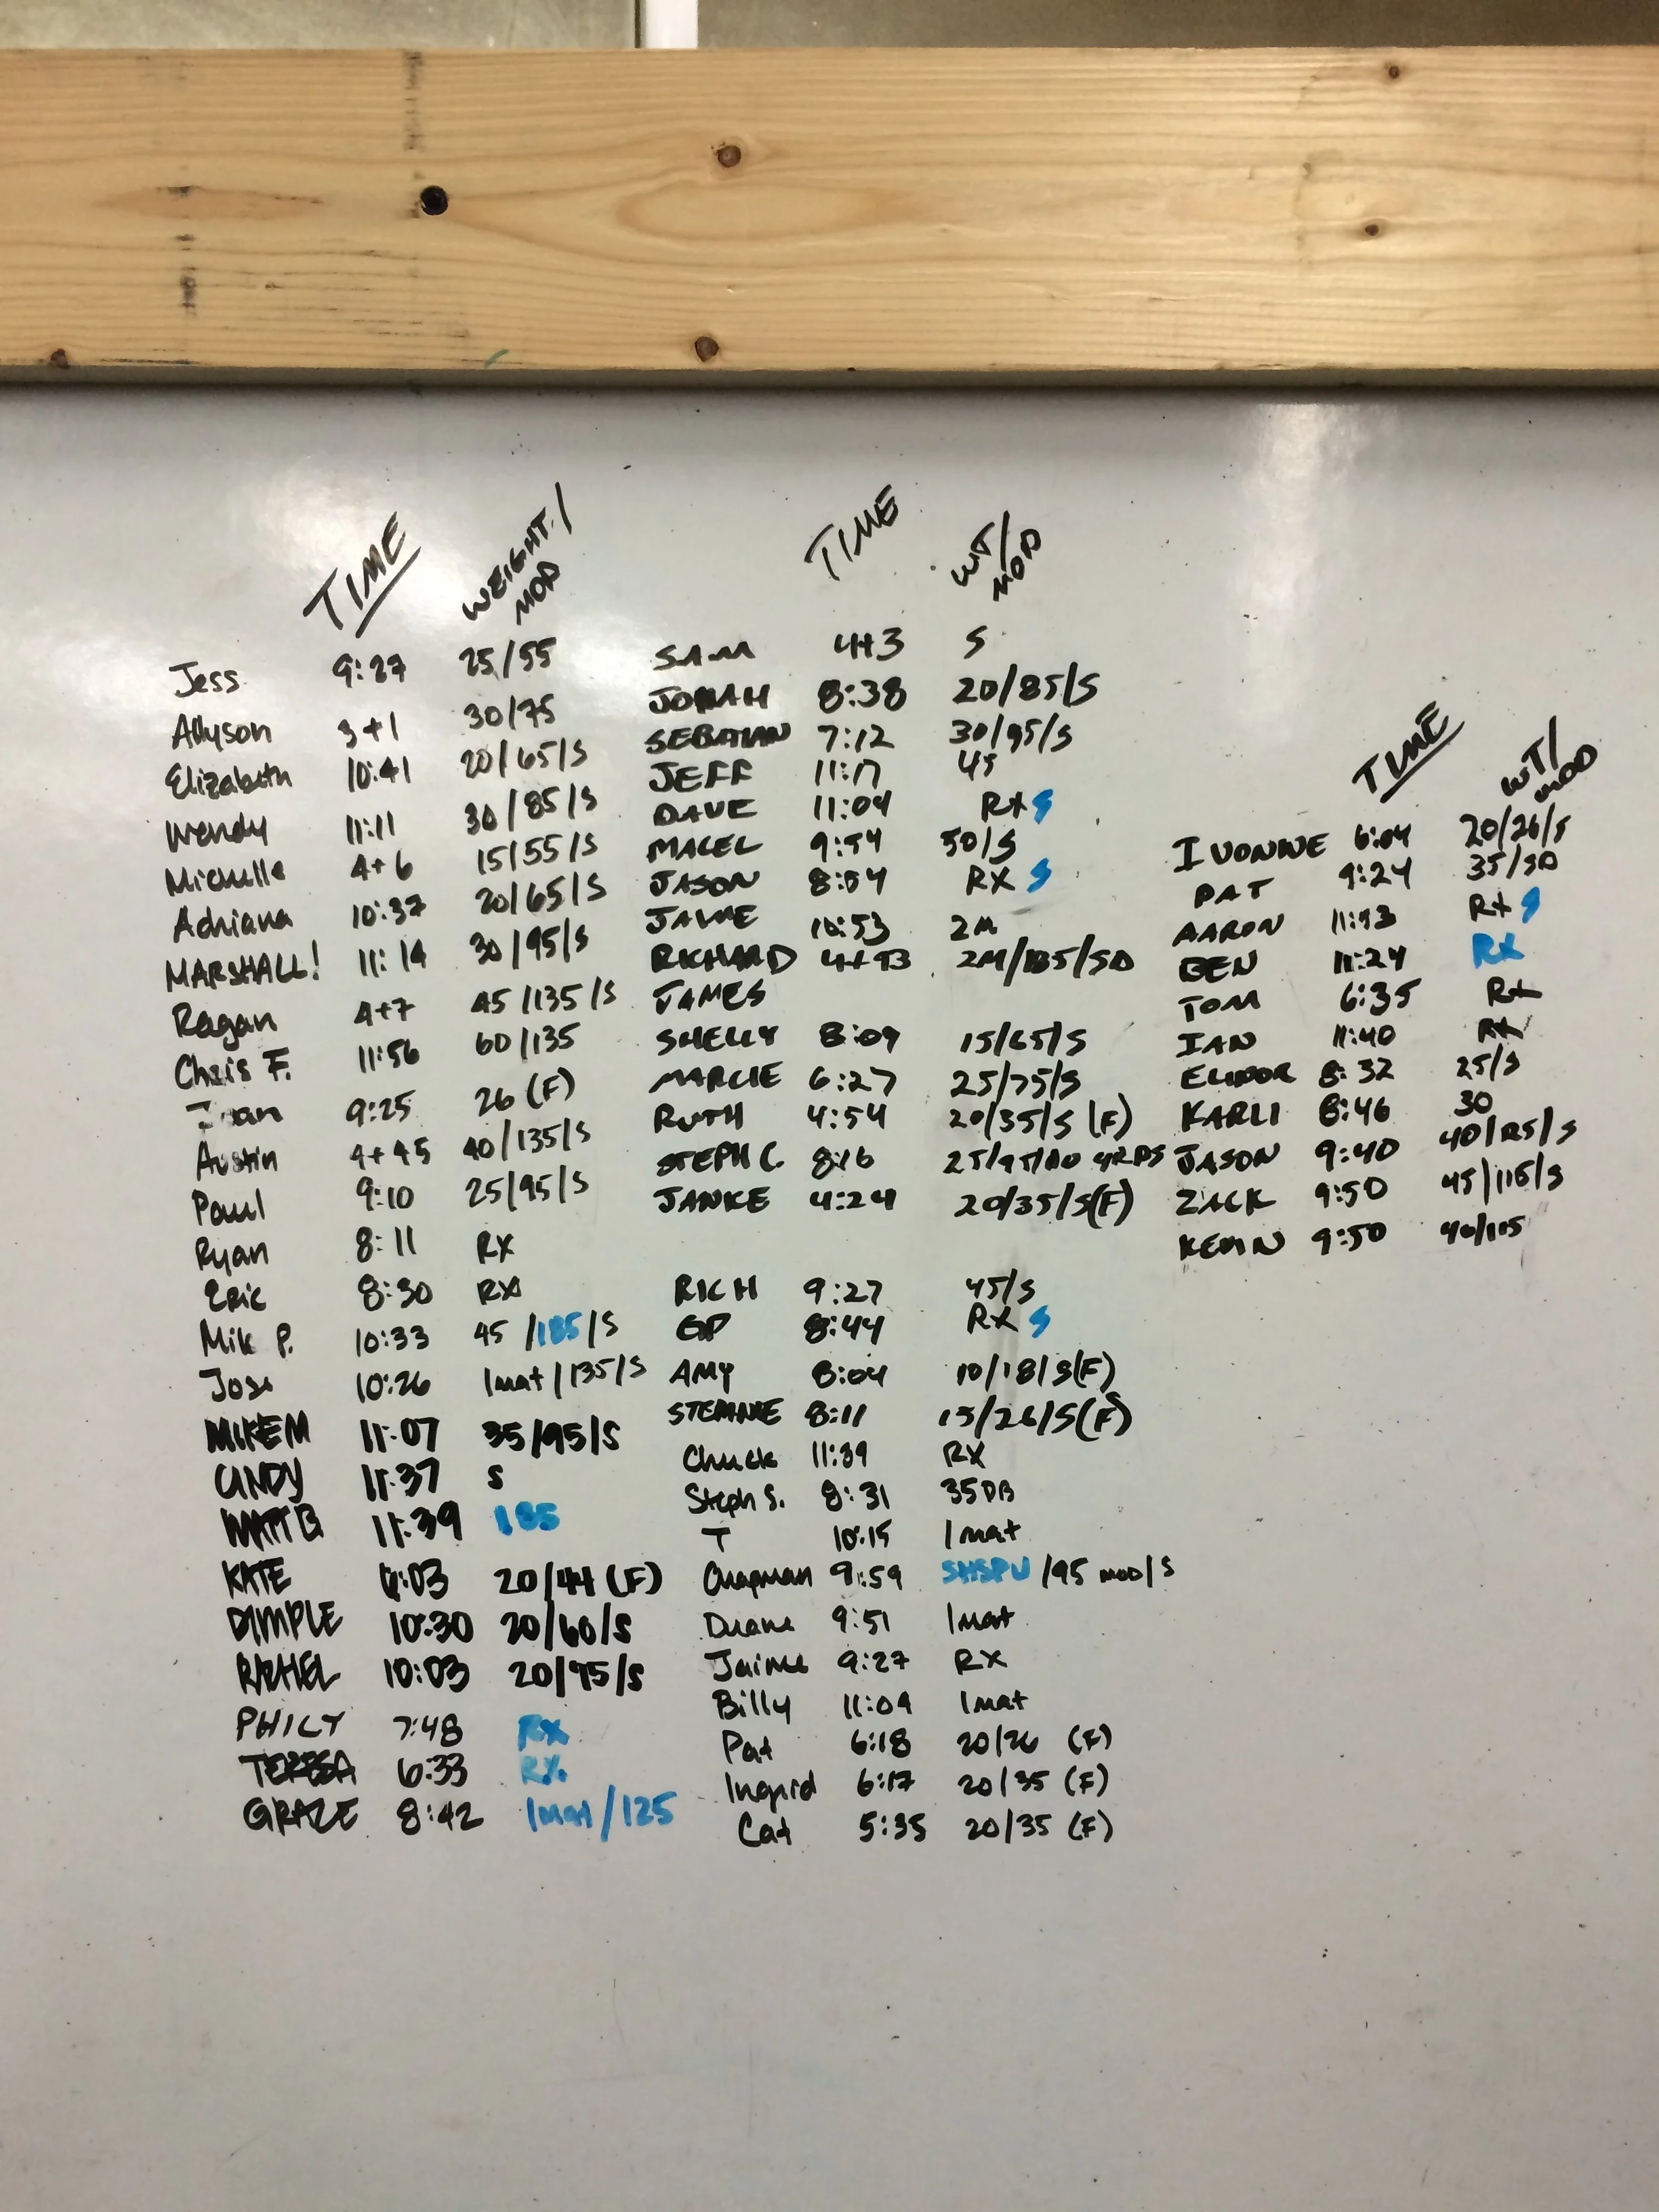 TIME WEIGHT/MOD
Jess 9:27 25/55
Allyson 3+1 30/75
Elizabeth 10:41 20/65/S
Wendy 11:11 30/85/S
Michelle 4+6 15/55/S
Adriana 10:37 20/65/S
MARSHALL! 11:14 30/95/S
Ragan 4+7 45/135/S
Chris F. 11:56 60/135
9:25 26 (F)
Austin 4+45 40/135/S
Paul 9:10 25/95/S
Ryan 8:11 RX
Eric 8:30 RX
Mik P. 10:33 45/185/S
Jose 10:26 1mat/135/S
MIKE M 11:07 35/95/S
CINDY 11:37 S
MATT B 11:39 185
KATE 6:03 20/44 (F)
DIMPLE 10:30 20/60/S
RACHEL 10:03 20/95/S
PHILLY 7:48 RX
TERESA 6:33 RX
GRACE 8:42 1mat/125
TIME WT/MOD
SAM 4+3 S
JONAH 8:38 20/85/S
7:12 30/95/S
JEFF 11:17 45
DAVE 11:04 RX S
9:54 50/S
JASON 8:54 RX S
JAIME 10:53 2M
RICHARD 4+93 2M/185/SD
JAMES
SHELLY 8:09 15/65/S
MARCIE 6:27 25/75/S
RUTH 4:54 20/35/S (F)
STEPH C. 8:16 25/95/
JANKE 4:24 20/35/S(F)
RICH 9:27 45/S
GP 8:44 RX S
AMY 8:04 10/18/S(F)
8:11 15/26/S(F)
Chuck 11:39 RX
Steph S. 8:31 35DB
T 10:15 1mat
Chapman 9:59 SHSPU/95 mod/S
Duane 9:51 1mat
Jaime 9:27 RX
Billy 11:04 1mat
Pat 6:18 20/26 (F)
Ingrid 6:17 20/35 (F)
Cat 5:35 20/35 (F)
TIME WT/MOD
IVONNE 6:04 20/26/S
PAT 9:24 35/SD
AARON 11:53 RX S
BEN 11:24 RX
TOM 6:35 RX
IAN 11:40 RX
ELINOR 8:32 25/S
KARLI 8:46 30
JASON 9:40 40/125/S
ZACK 9:50 45/115/S
KEVIN 9:50 40/105